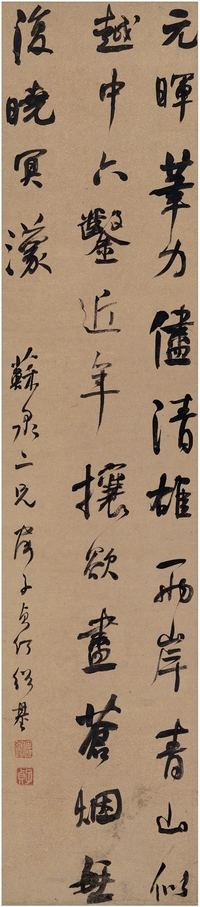 元暉筆力儘清雄兩岸青山似
越中六鑿近年攘欲盡蒼烟無
復曉冥濛
蘇泉二兄屬子貞何紹基